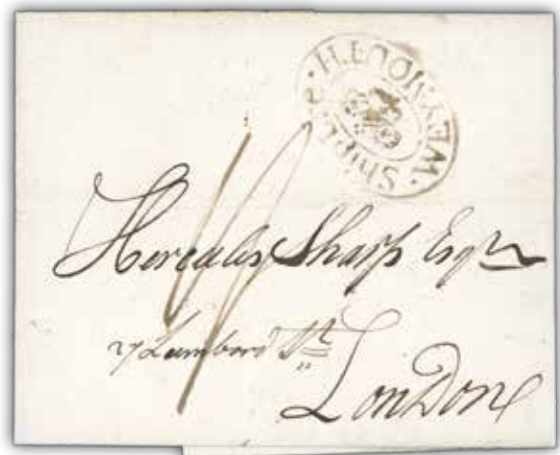 WEYMOUTH · Ship Lre
Hercules Sharp Esqr
27 Lombord St
London